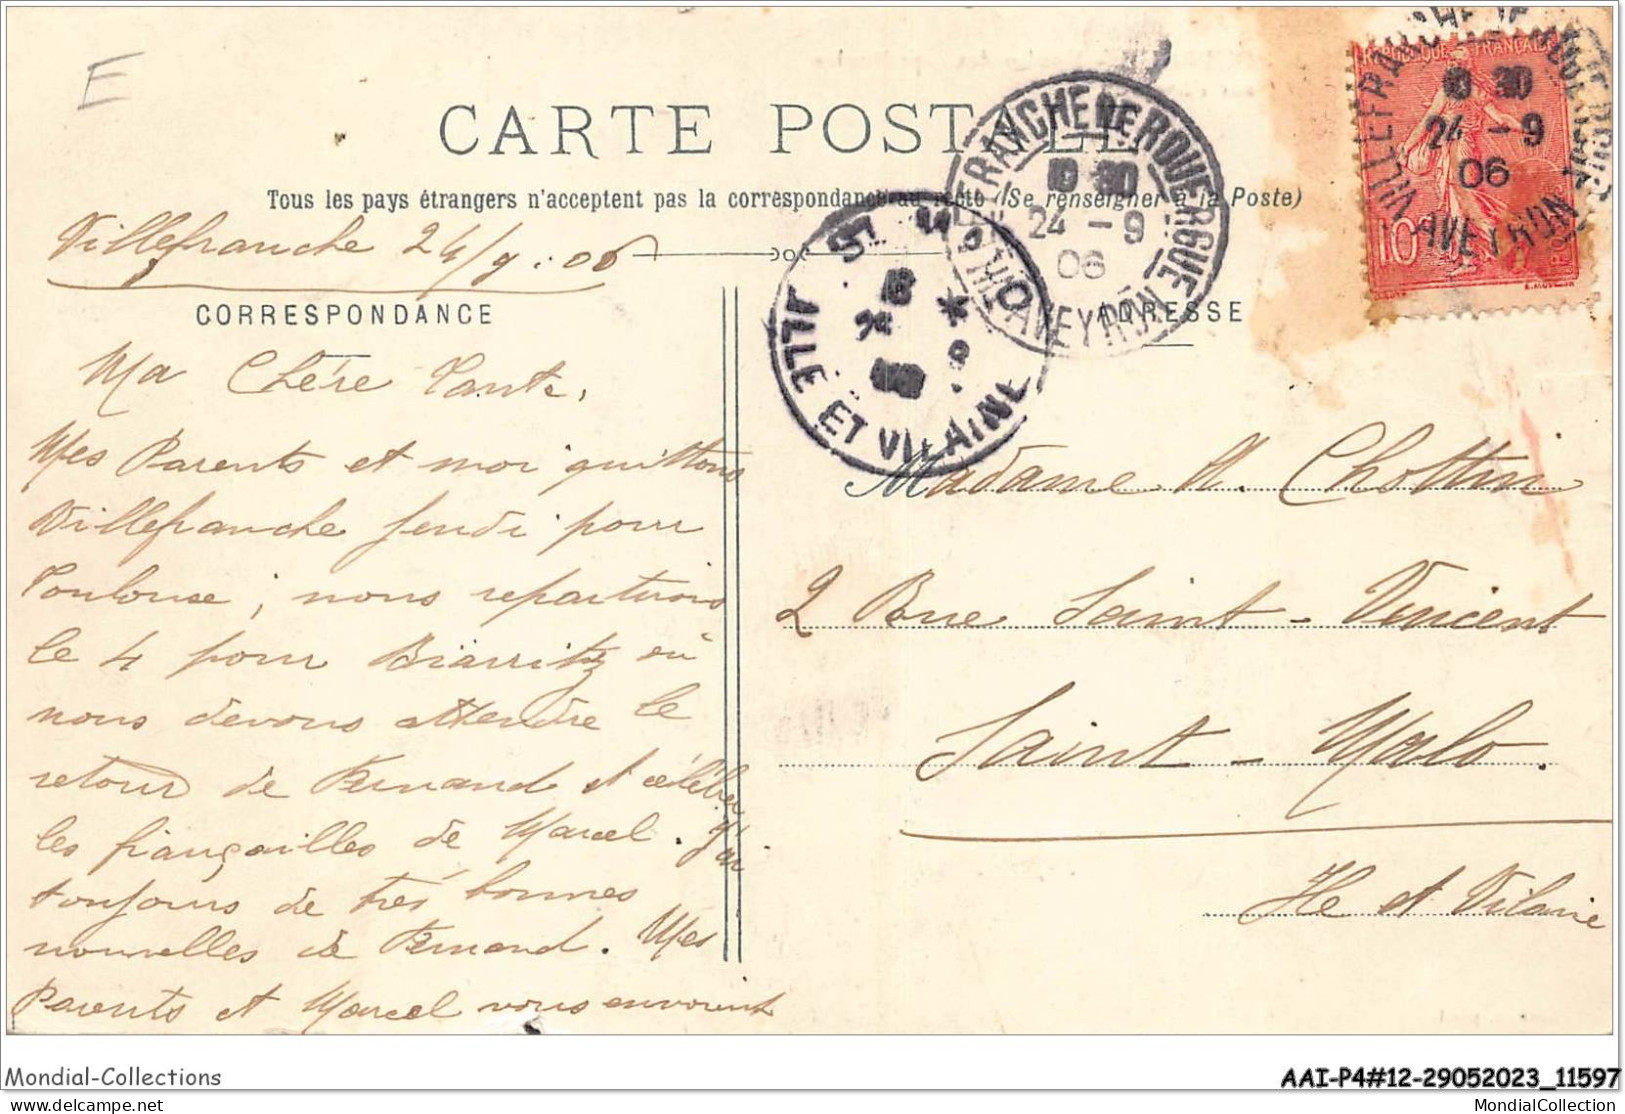 E
CARTE POSTALE
Tous les pays étrangers n'acceptent pas la correspondance au recto (Se renseigner à la Poste)
Villefranche 24/9-06
CORRESPONDANCE
ADRESSE
Ma Chère Tante,
Mes Parents et moi quittons
Villefranche jeudi pour
Toulouse ; nous repartirons
le 4 pour Biarritz où
nous devons attendre le
retour de Fernand et célébrer
les fiançailles de Marcel. J'ai
toujours de très bonnes
nouvelles de Fernand. Mes
Parents et Marcel vous envoient
Madame A. Chottin
2 Rue Saint-Vincent
Saint-Malo.
Ille et Vilaine
VILLEFRANCHE DE ROUERGUE
24 - 9
06
AVEYRON
ST MALO
ILLE ET VILAINE
REPUBLIQUE FRANÇAISE
10
VILLEFRANCHE DE ROUERGUE
24 - 9
06
AVEYRON
Mondial-Collections
AAI-P4#12-29052023_11597
delcampe.net
MondialCollection